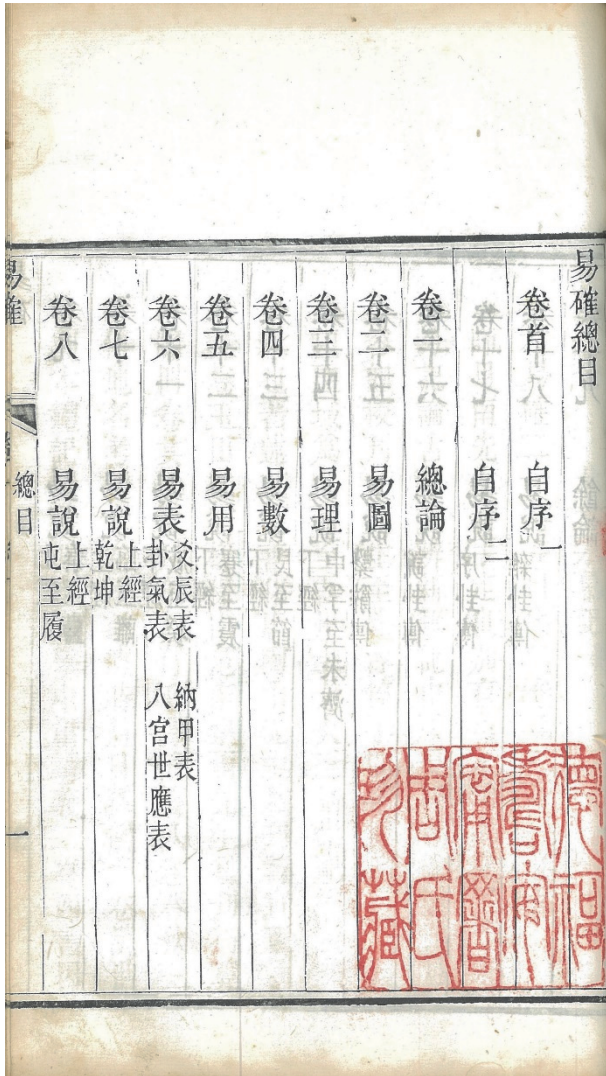 易確總目
卷首 自序一
自序二
卷一 總論
卷二 易圖
卷三 易理
卷四 易數
卷五 易用
卷六 易表 爻辰表 納甲表
卦氣表 八宮世應表
卷七 易說 上經
乾坤
卷八 易說 上經
屯至履
易確 總目 一
德福
壽安
周氏
珍藏